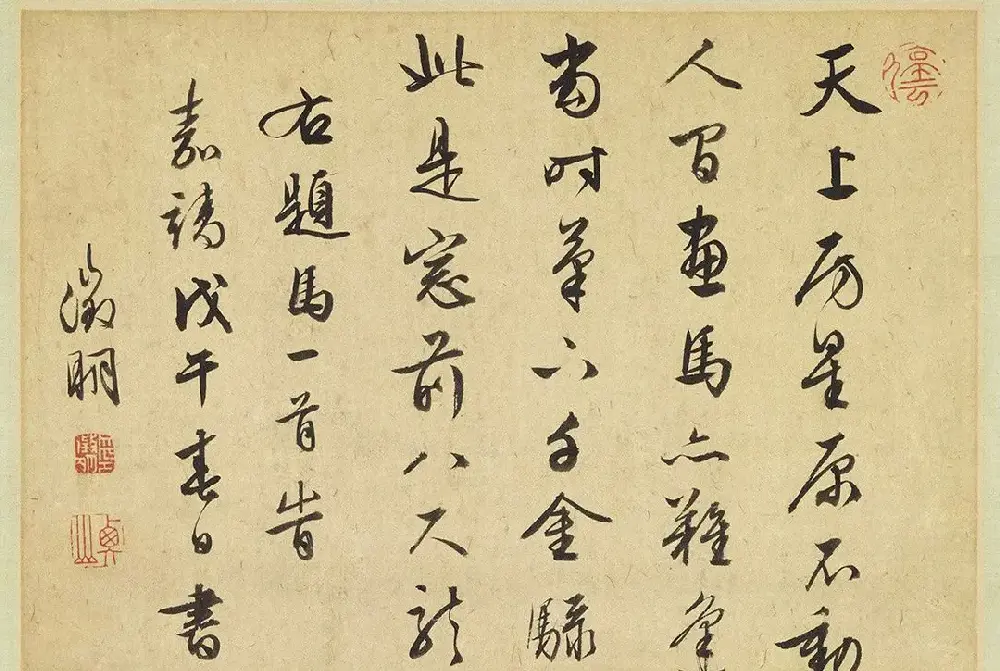 停雲
天上房星原不動
人間畫馬亦難逢
當時筆下千金騄
此是窓前八尺龍
右題馬一首旹
嘉靖戊午春日書
徵明
衡山